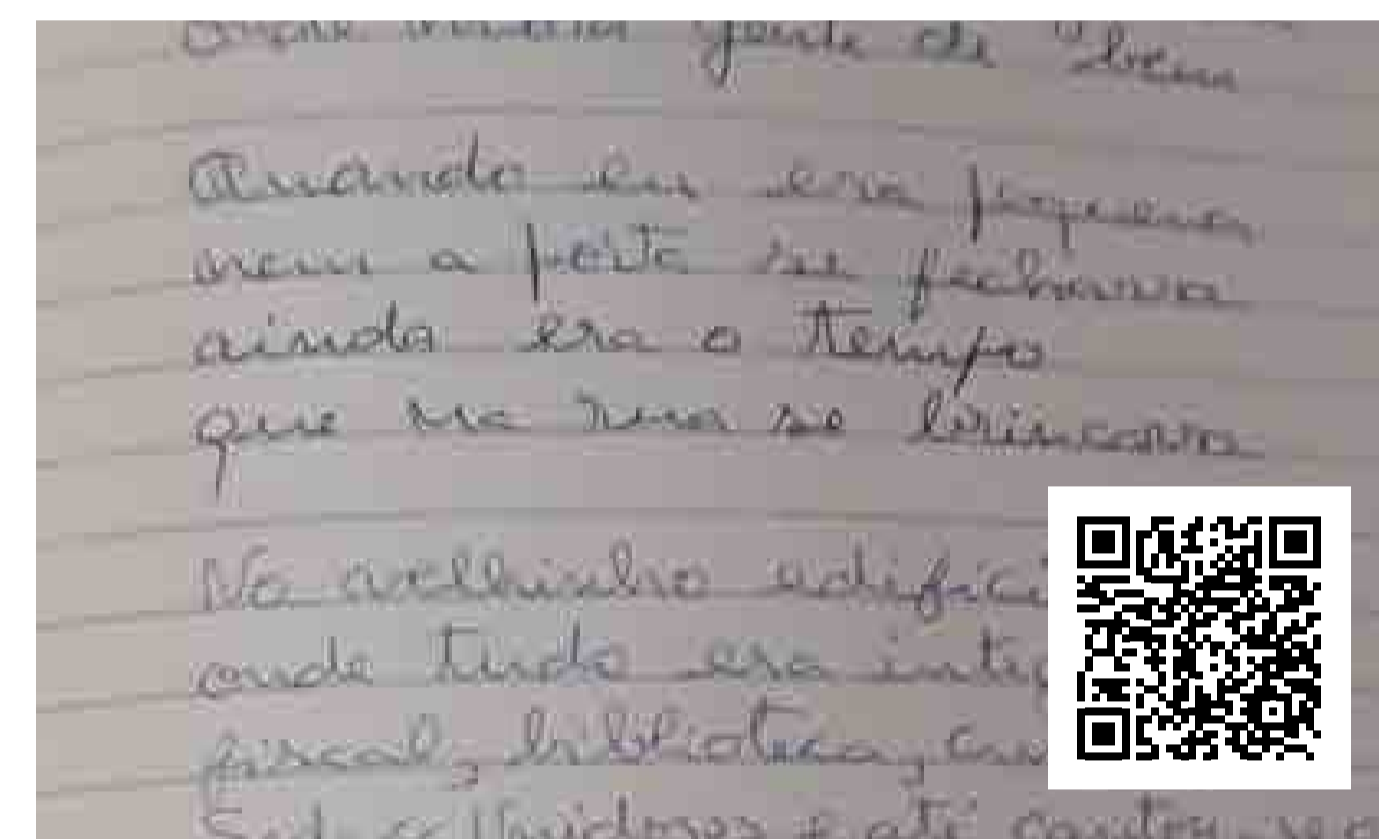 gente de bem
Quando eu era pequena
nem a porta se fechava
ainda era o tempo
que na rua se brincava
No velhinho edifíci
onde tudo era
fiscal, biblioteca,
e até cantor